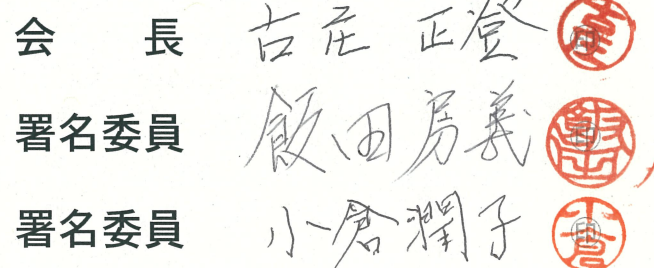 会 長 古庄 正登 ㊞
署名委員 飯田房義 ㊞
署名委員 小倉潤子 ㊞